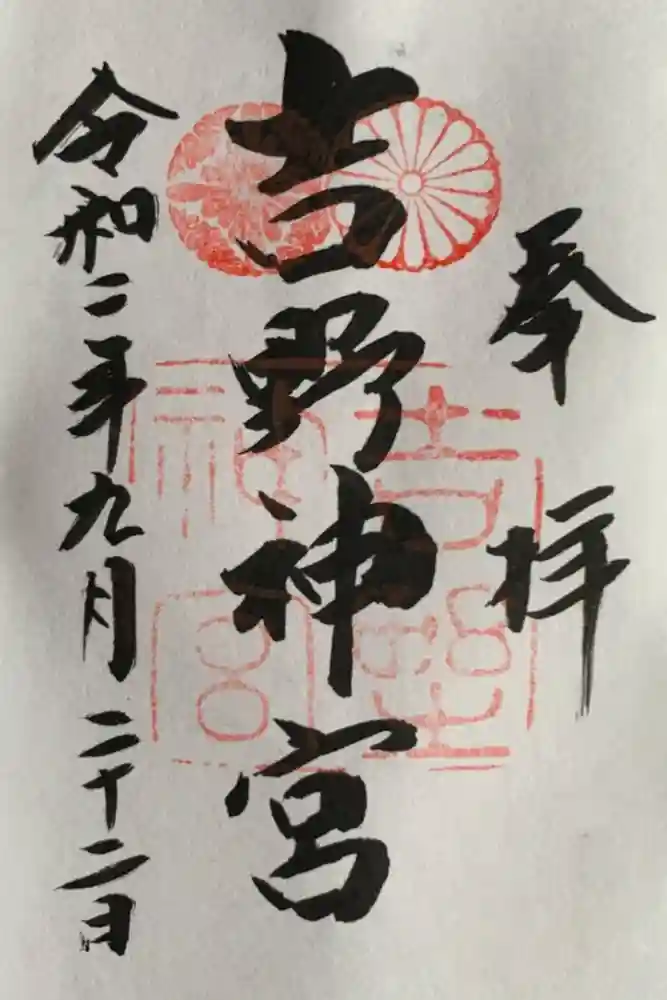 奉拝
吉野神宮
令和二年九月二十二日
吉野
神宮